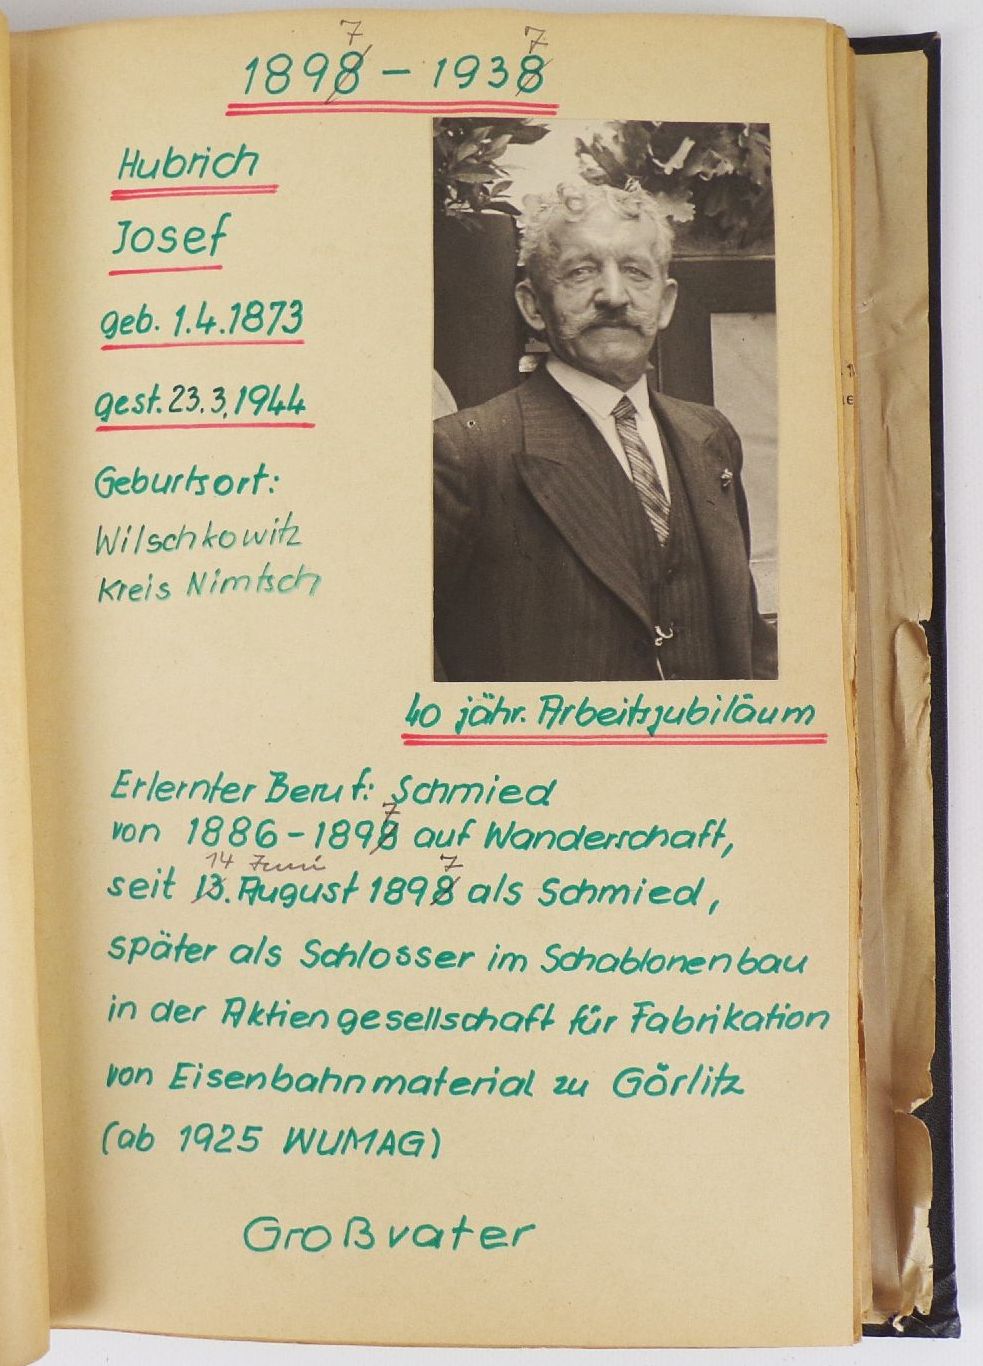 7 7
1898 – 1938
Hubrich
Josef
geb. 1.4.1873
gest. 23.3.1944
Geburtsort:
Wilschkowitz
Kreis Nimtsch
40 jähr. Arbeitsjubiläum
Erlernter Beruf: Schmied
7
von 1886 – 1898 auf Wanderschaft,
14 Juni 7
seit 13. August 1898 als Schmied,
später als Schlosser im Schablonenbau
in der Aktiengesellschaft für Fabrikation
von Eisenbahnmaterial zu Görlitz
(ab 1925 WUMAG)
Großvater